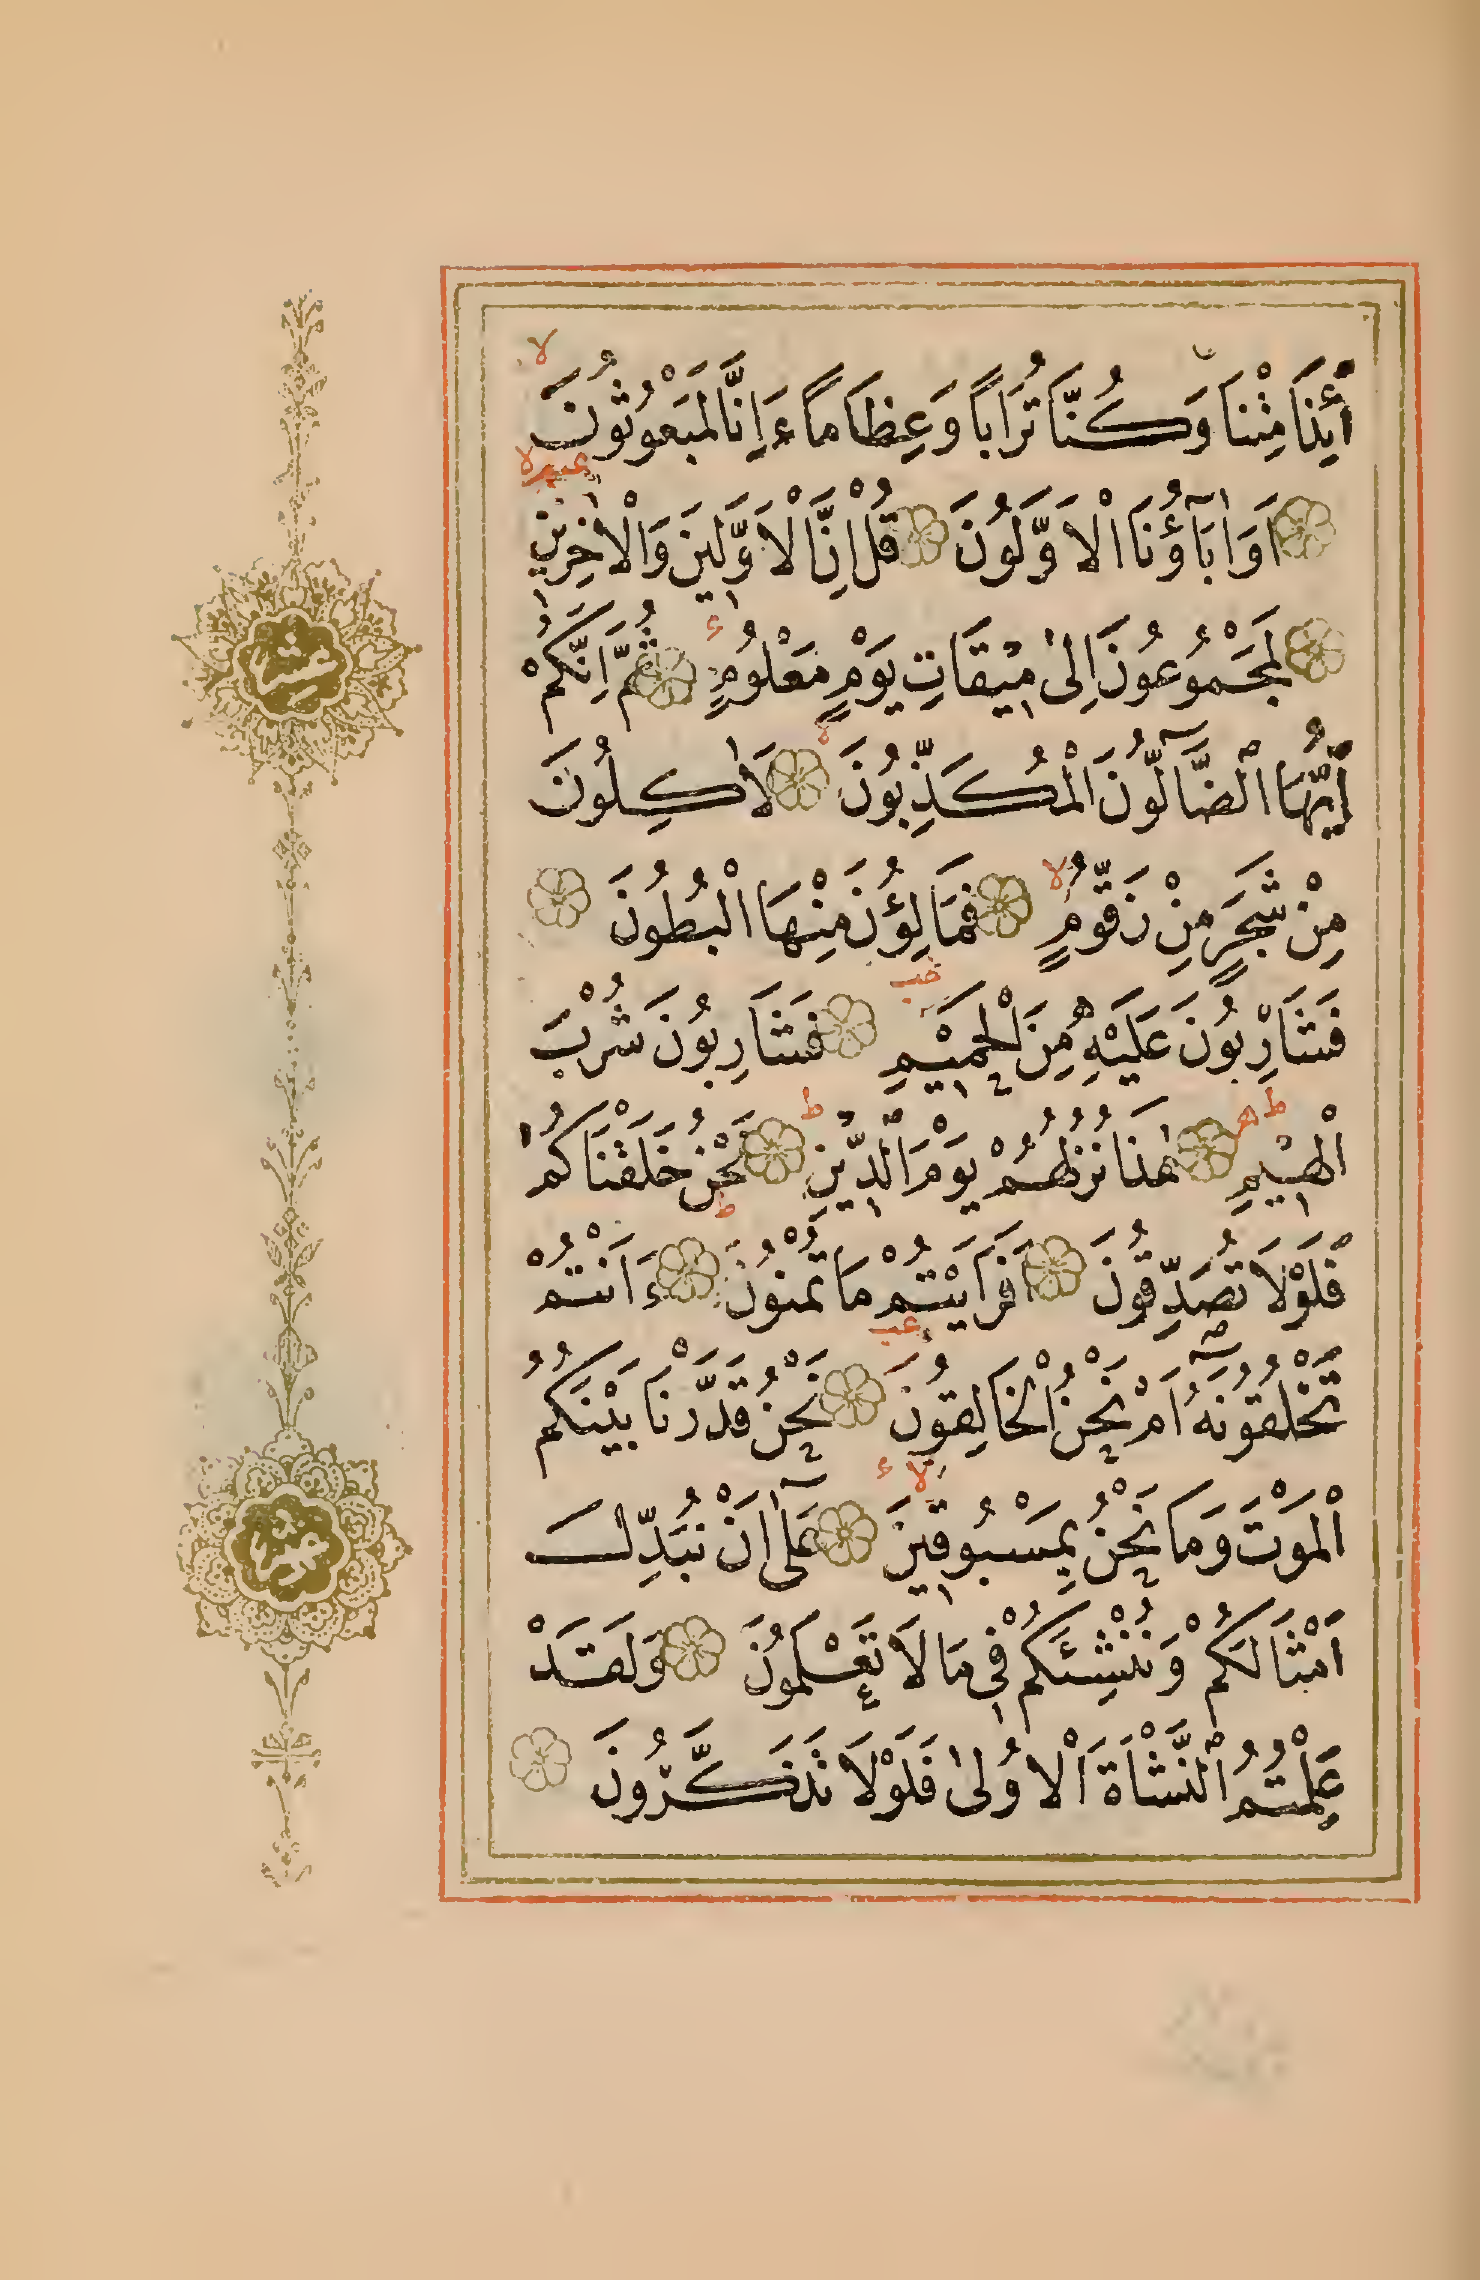 أَئِذَا مِتْنَا وَكُنَّا تُرَابًا وَعِظَامًا ءَاِنَّا لَمَبْعُوثُونَ
اَوَاٰبَآؤُنَا الْاَوَّلُونَ قُلْ اِنَّ الْاَوَّلِينَ وَالْاٰخِرِينَ
لَمَجْمُوعُونَ اِلٰى مِيقَاتِ يَوْمٍ مَعْلُومٍ ثُمَّ اِنَّكُمْ
أَيُّهَا الضَّآلُّونَ الْمُكَذِّبُونَ لَاٰكِلُونَ
مِنْ شَجَرٍ مِنْ زَقُّومٍ فَمَالِؤُنَ مِنْهَا الْبُطُونَ
فَشَارِبُونَ عَلَيْهِ مِنَ الْحَمِيمِ فَشَارِبُونَ شُرْبَ
الْهِيمِ هٰذَا نُزُلُهُمْ يَوْمَ الدِّينِ نَحْنُ خَلَقْنَاكُمْ
فَلَوْلَا تُصَدِّقُونَ اَفَرَاَيْتُمْ مَا تُمْنُونَ ءَاَنْتُمْ
تَخْلُقُونَهُ اَمْ نَحْنُ الْخَالِقُونَ نَحْنُ قَدَّرْنَا بَيْنَكُمُ
الْمَوْتَ وَمَا نَحْنُ بِمَسْبُوقِينَ عَلٰٓى اَنْ نُبَدِّلَ
اَمْثَالَكُمْ وَنُنْشِئَكُمْ فِي مَا لَا تَعْلَمُونَ وَلَقَدْ
عَلِمْتُمُ النَّشْاَةَ الْاُولٰى فَلَوْلَا تَذَكَّرُونَ